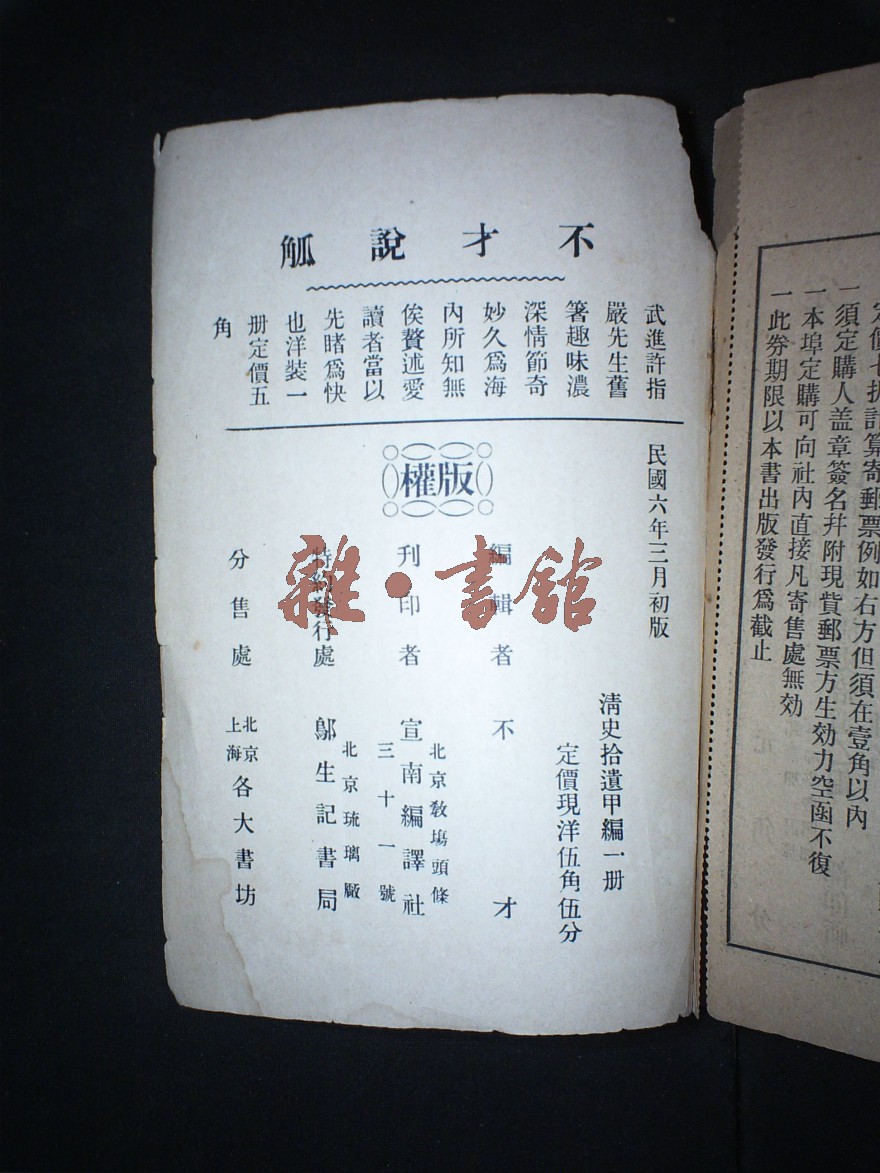 定價七折計算寄郵票例如右方但須在壹角以內
一須定購人盖章簽名幷附現貲郵票方生効力空函不復
一本埠定購可向社內直接凡寄售處無効
一此劵期限以本書出版發行爲截止
不才說觚
武進許指
嚴先生舊
箸趣味濃
深情節奇
妙久爲海
內所知無
俟贅述愛
讀者當以
先睹爲快
也洋裝一
册定價五
角
版權
民國六年三月初版
清史拾遺甲編一册
定價現洋伍角伍分
編輯者不才
北京敎塲頭條
刊印者宣南編譯社
三十一號
北京琉璃厰
特約發行處鄔生記書局
分售處
北京
上海
各大書坊
雜·書館